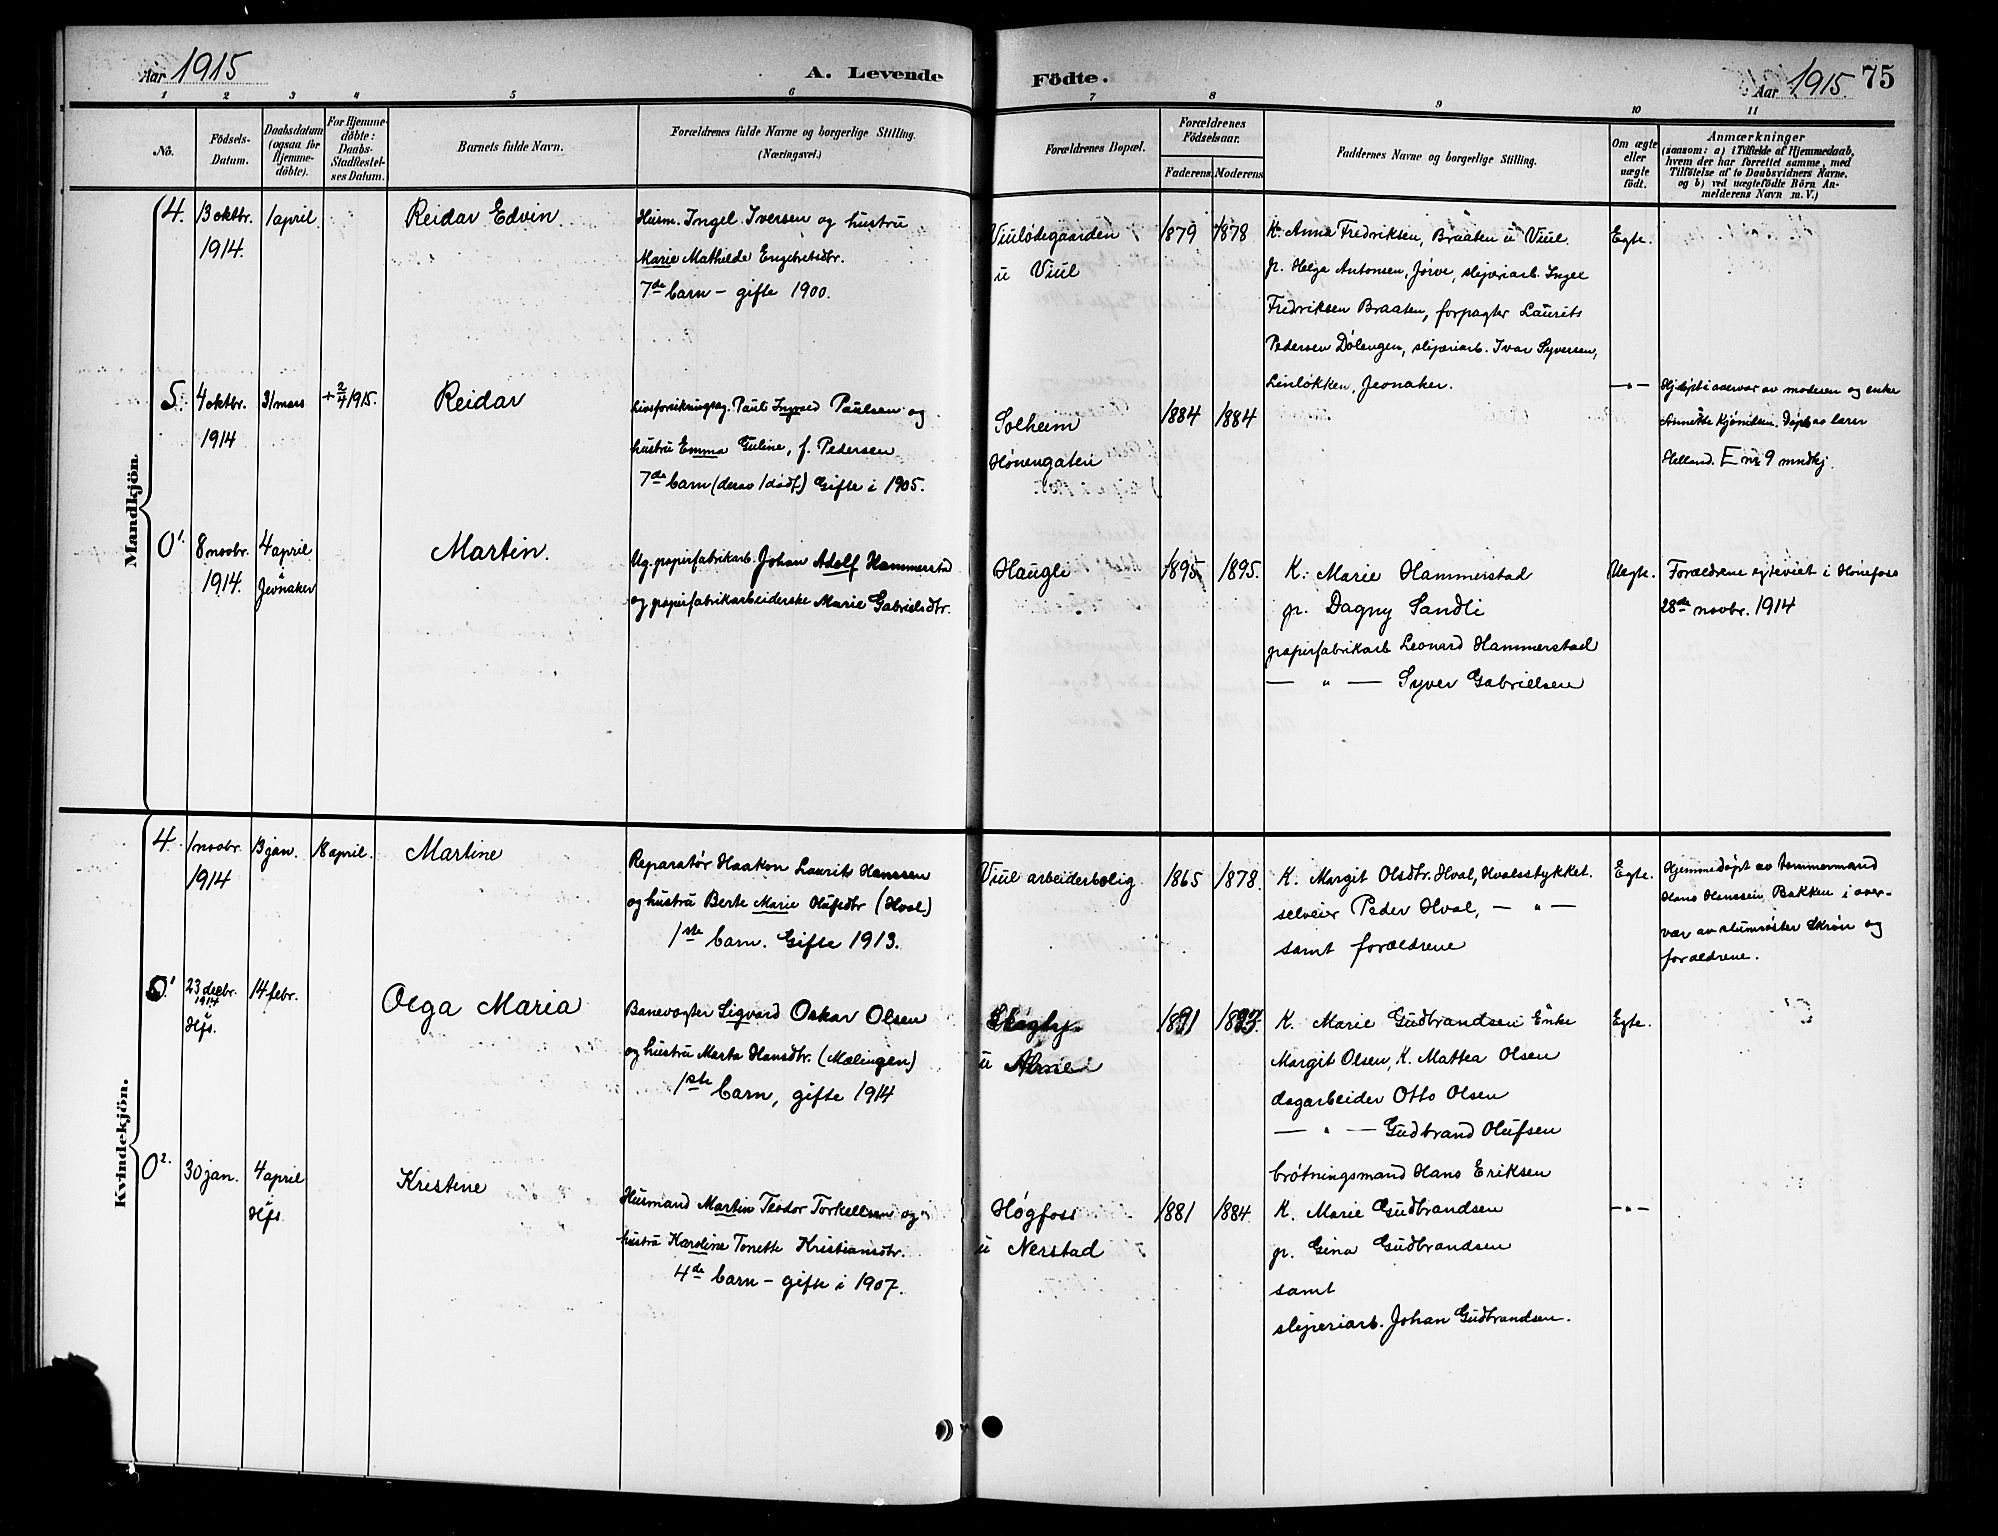 Aar 1915
A. Levende Födte.
Aar 1915. 75
1 2 3 4 5 6 7 8 9 10 11
No.
Födsels-
Datum.
Daabsdatum
(ogsaa for
Hjemme-
döbte).
For Hjemme-
döbte:
Daabs-
Stadfæstel-
ses Datum.
Barnets fulde Navn.
Forældrenes fulde Navne og borgerlige Stilling.
(Næringsvei.)
Forældrenes Bopæl.
Forældrenes
Födselsaar.
Faderens. Moderens.
Faddernes Navne og borgerlige Stilling.
Om ægte
eller
uægte
födt.
Anmærkninger
(saasom: a) i Tilfælde af Hjemmedaab,
hvem der har forrettet samme, med
Tilföielse af to Daabsvidners Navne,
og b) ved uægtefödte Börn An-
melderens Navn m. V.)
Mandkjön.
4. 13 oktbr.
1914.
1 april
Reidar Edvin
Husm. Ingel Iversen og hustru
Marie Mathilde Engebretsdtr.
7de barn – gifte 1900.
Viulødegaarden
u Viul
1879 1878
K. Anna Fredriksen, Braaten u Viul.
p. Helga Antonsen, Jørve, sliperiarb. Ingel
Fredriksen Braaten, forpagter Laurits
Pedersen Dölengen, sliperiarb. Ivar Syversen,
Linløkken, Jevnaker.
Egte.
5. 4 oktbr.
1914
31 mars
+ 2/4 1915.
Reidar
Livsforsikringsag. Paul Ingvald Paulsen og
hustru Emma Guline, f. Pedersen
7de barn (derav 1 dødf) Gifte i 1905.
Solheim
Hønengaten
1884 1884
— " —
av moderen og enke
Annette Kjønidsen. Døpt av lærer
Helland. E nr 9 mndkj.
0 1. 8 novbr.
1914.
4 april
Jevnaker
Martin.
Ug. papirfabrikarb. Johan Adolf Hammerstad
og papirfabrikarbeiderske Marie Gabrielsdtr.
Haugli
1895 1895.
K. Marie Hammerstad
p. Dagny Sandli
papirfabrikarb Leonard Hammerstad
— " — Syver Gabrielsen
Uegte.
Forældrene egteviet i Hönefoss
28de novbr. 1914
Kvindekjön.
4. 1 novbr.
1914
13 jan.
18 april.
Martine
Reparatør Haakon Laurits Hanssen
og hustru Berte Marie Olufsdtr (Hval)
1ste barn. Gifte 1913.
Viul arbeiderbolig
1865 1878.
K. Margit Olsdtr. Hval, Hvalsstykket.
selveier Peder Hval, — " —
samt forældrene
Egte.
Hjemmedøpt av tømmermand
Hans Hanssen, Bakken i over-
vær av Skrøn og
forældrene.
0 1 23 decbr.
1914
Hfs.
14 febr.
Olga Maria
Banevogter Sigvard Oskar Olsen
og hustru Marta Hansdtr. (Mælingen)
1ste barn, gifte 1914
u
1891 1893.
K. Marie Gudbrandsen Enke
Margit Olsen, K. Mattea Olsen
dagarbeider Otto Olsen
— " — Gudbrand Olufsen
brøtningsmand Hans Eriksen
Egte.
0 2. 30 jan.
4 april
Hfs
Kristine
Husmand Martin Teodor Torkellsen og
hustru Karoline Tonette Kristiansdtr.
4de barn – gifte i 1907.
Høgfoss
u Nerstad
1881 1884
K. Marie Gudbrandsen
p. Gina Gudbrandsen
samt
sliperiarb. Johan Gudbrandsen.
— " —